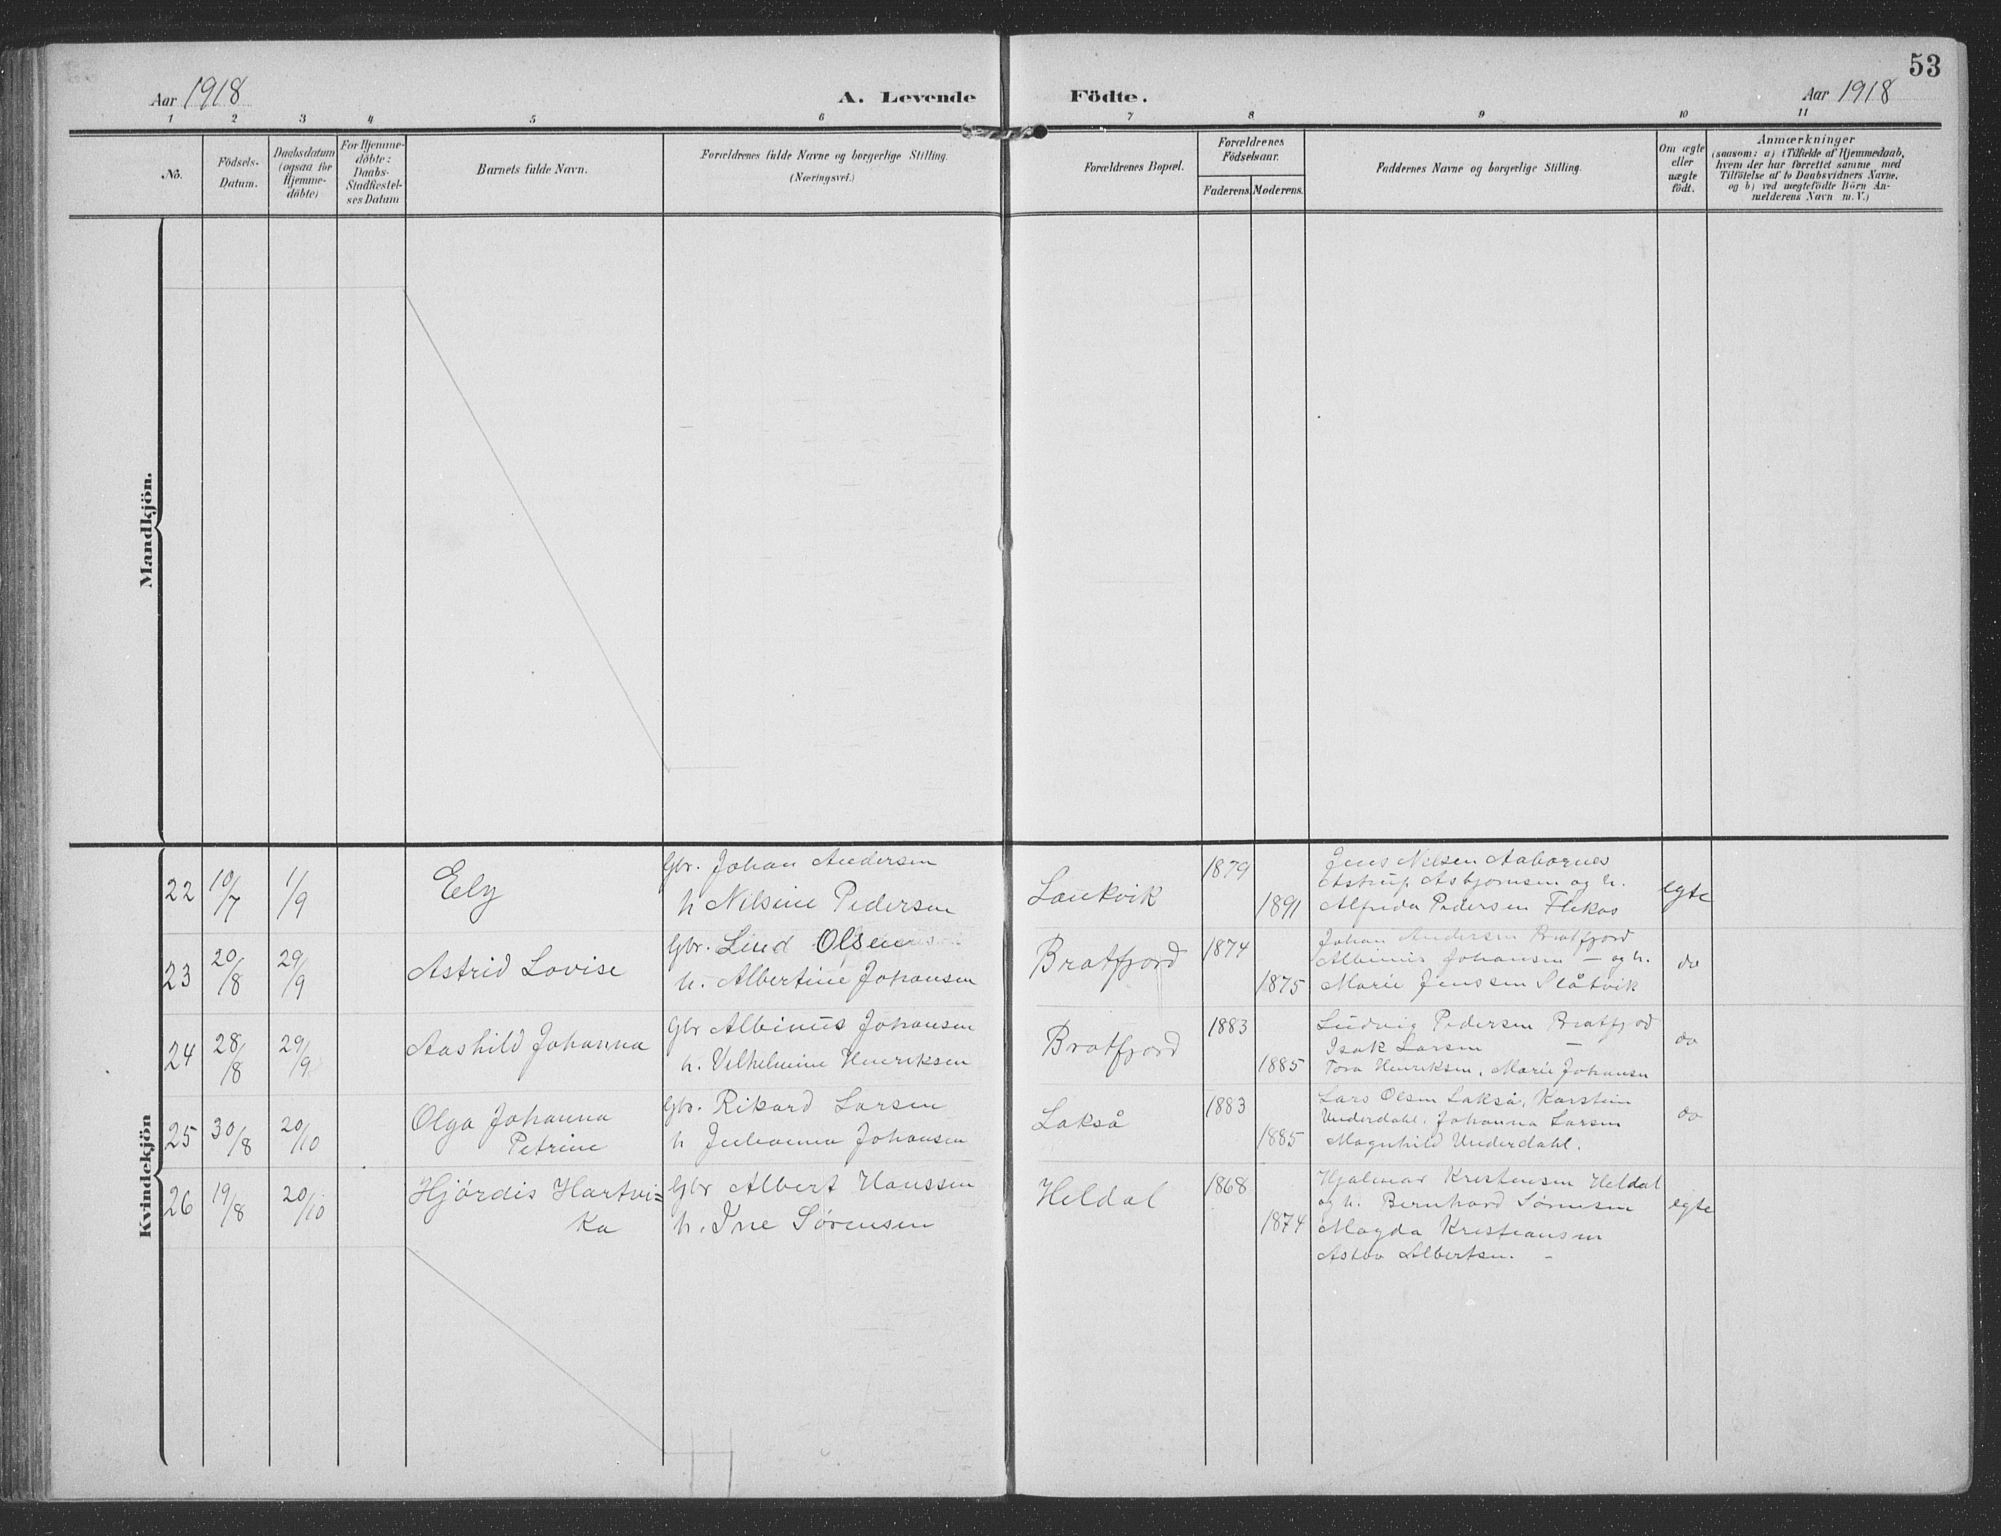 53
Aar 1918
A. Levende Födte.
Aar 1918
1 2 3 4 5 6 7 8 9 10 11
No.
Födsels-
Datum.
Daabsdatum
(ogsaa for
Hjemme-
döbte)
For Hjemme-
döbte:
Daabs-
Stadfæstel-
ses Datum
Barnets fulde Navn.
Forældrenes fulde Navne og borgerlige Stilling.
(Næringsvei.)
Forældrenes Bopæl.
Forældrenes
Födselsaar.
Faderens. Moderens.
Faddernes Navne og borgerlige Stilling.
Om ægte
eller
uægte
födt.
Anmærkninger
(saasom: a) i Tilfælde af Hjemmedaab,
hvem der har forrettet samme, med
Tilföielse af to Daabsvidners Navne,
og b) ved uægtefödte Börn An-
melderens Navn m. V.)
Mandkjön.
Kvindekjön
22 10/7 1/9 Ely
Gbr. Johan Andersen
h Nilsine Pedersen
Laukvik
1879
1891
Jens Nilsen Aabornes
Astrup Asbjørnsen og h.
Alfrida Pedersen Flekos
egte
23 20/8 29/9 Astrid Lovise
Gbr. Lind Olsen
h. Albertine Johansen
Bratfjord
1874
1875
Johan Andersen Bratfjord
Albinus Johansen — og h.
Marie Jenssen Slåtvik
do
24 28/8 29/9 Aashild Johanna
Gbr Albinus Johansen
h. Vilhelmine Henriksen
Bratfjord
1883
1885
Ludvig Pedersen Bratfjod
Isak Larsen —
Tora Henriksen, Marie Johansen
do
25 30/8 20/10 Olga Johanna
Petrine
Gbr. Rikard Larsen
h Julianna Johansen
Lakså
1883
1885
Lars Olsen Lakså, Karstein
Underdahl, Johanna Larsen
Magnhild Underdahl.
do
26 19/8 20/10 Hjördis Hartvi=
ka
Gbr Albert Hanssen
h. Ine Sørensen
Heldal
1868
1874
Hjalmar Kristensen Heldal
og h. Bernhard Sørensen
Magda Kristiansen
Albertsen. —
egte